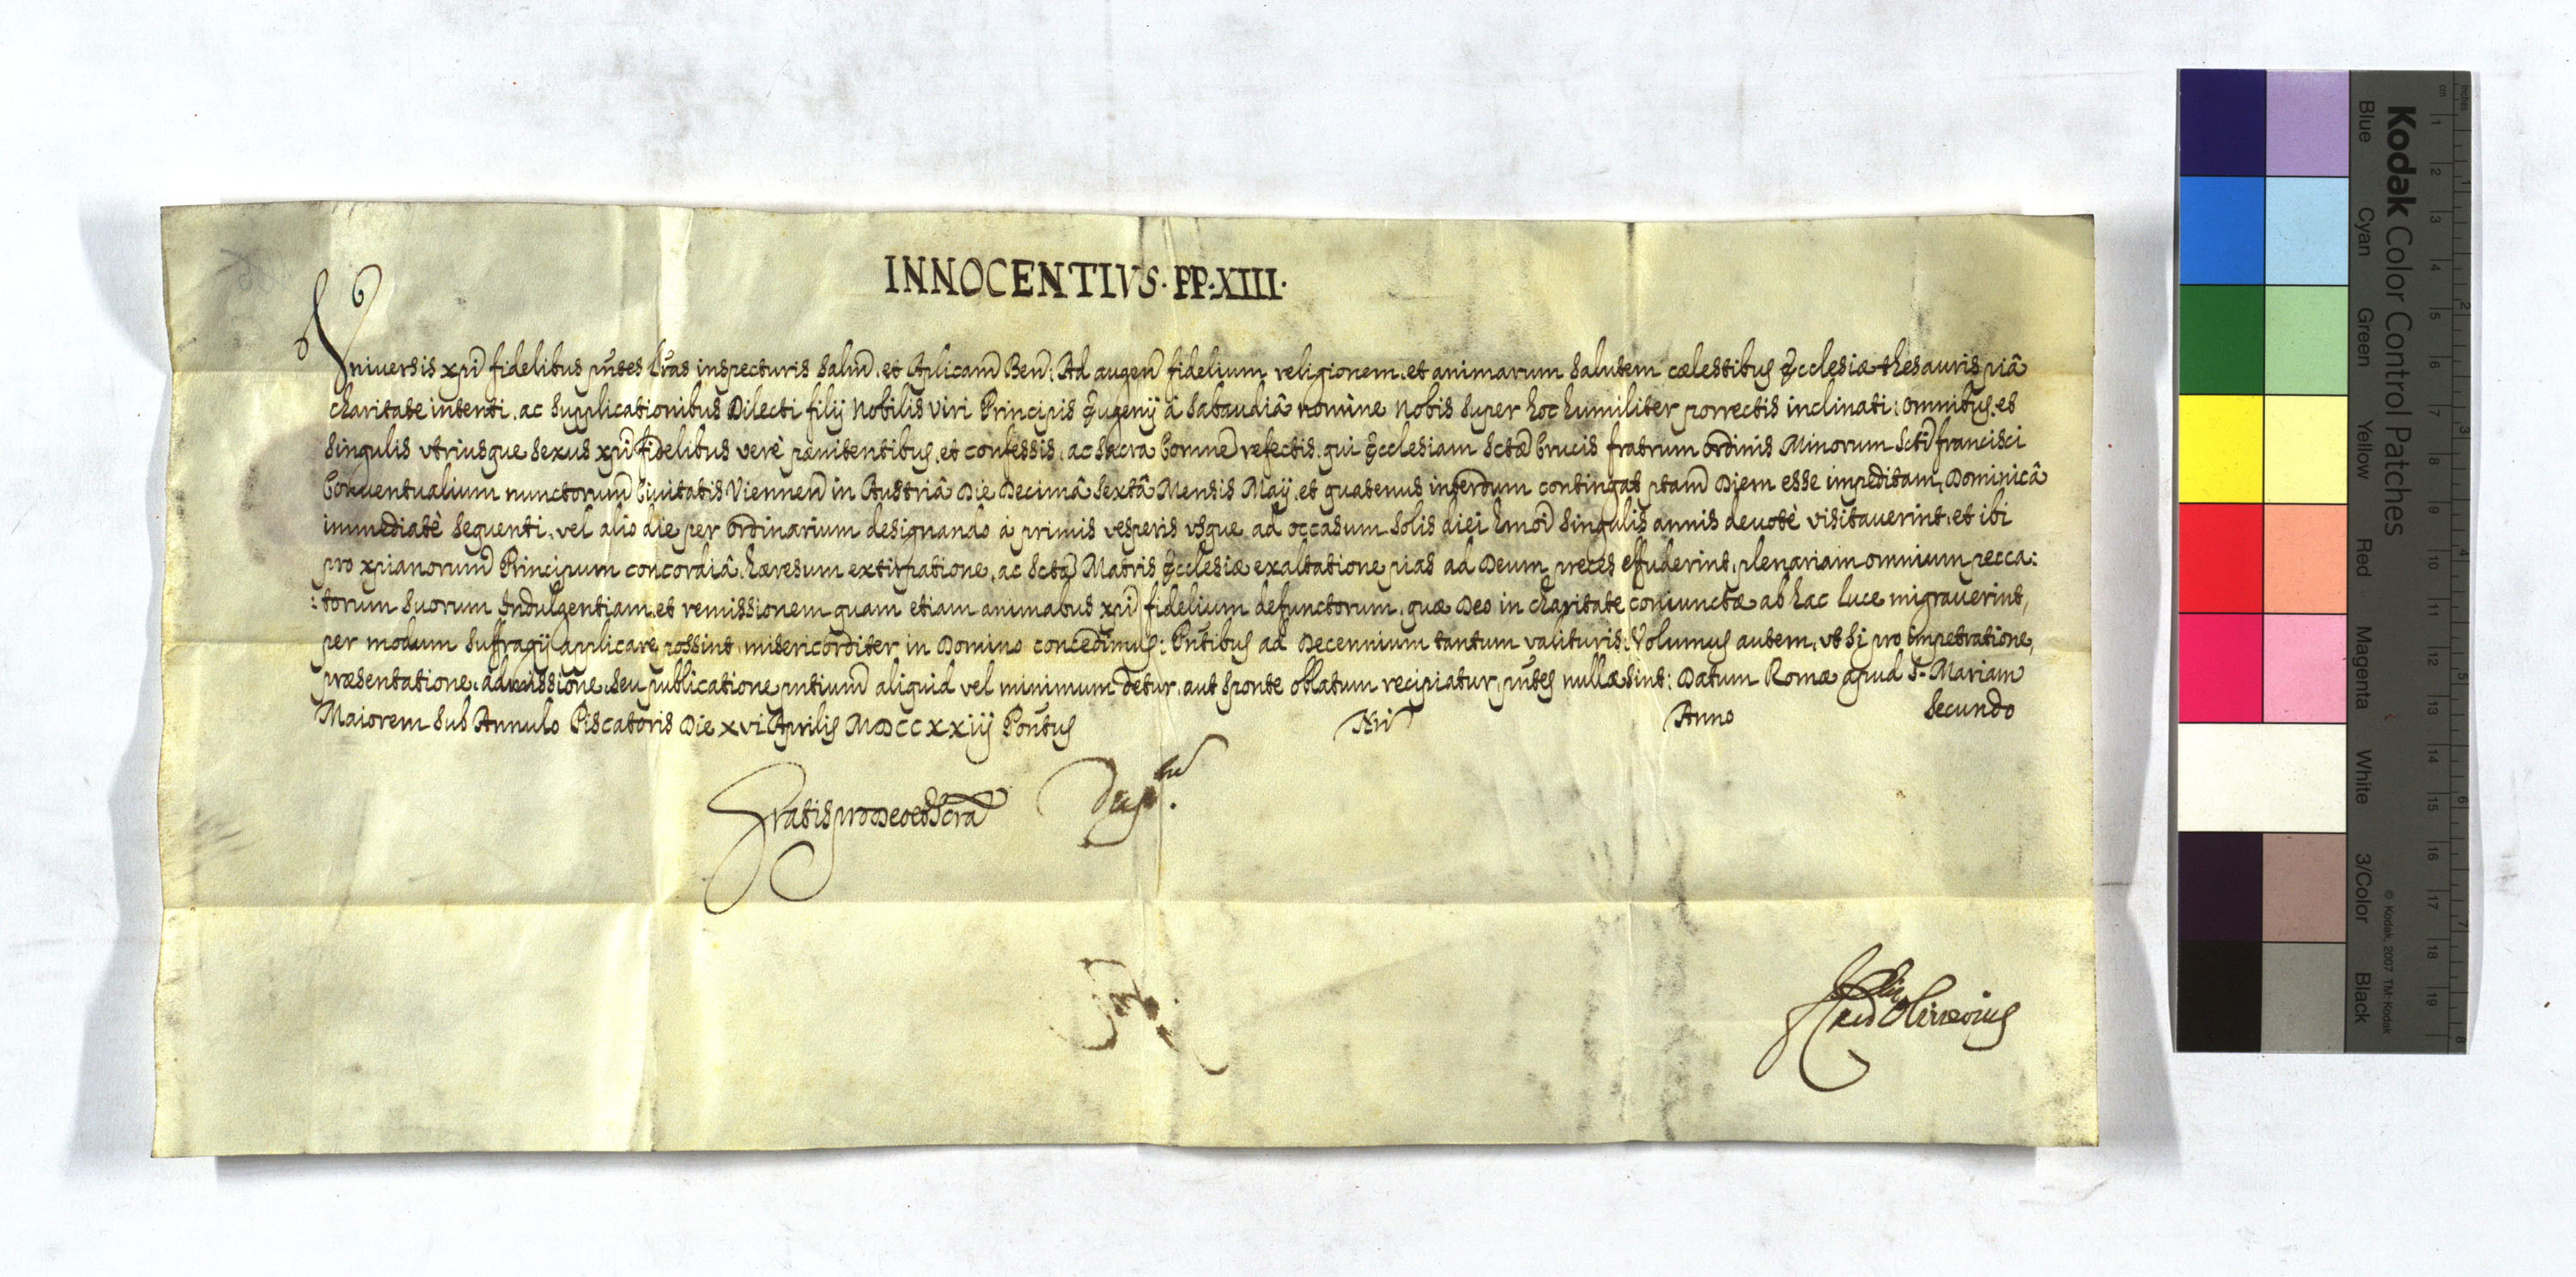 INNOCENTIVS. PP. XIII.
Vniversis xpi fidelibus pntes lras inspecturis salud. et Aplicam Ben: Ad augend fidelium religionem, et animarum salutem cælestibus Ecclesiæ thesauris piâ
charitate intenti, ac supplicationibus Dilecti filij Nobilis viri Principis Eugenij à Sabaudiâ nomine nobis super hoc humiliter porrectis inclinati: omnibus, et
singulis vtriusque sexus xpi fidelibus verè pænitentibus, et confessis, ac sacra Comne refectis, qui Ecclesiam Sctæ Crucis fratrum ordinis Minorum Scti francisci
Conuentualium nunctorum Ciuitatis Viennen in Austriâ Die Decimâ Sextâ Mensis Maij, et quatenus interdum contingat ptam Diem esse impeditam, Dominicâ
immediatè sequenti, vel alio die per ordinarium designando à primis vesperis vsque ad occasum solis diei hmoi singulis annis deuotè visitauerint, et ibi
pro xpianorum Principum concordiâ, hæresum extirpatione, ac Sctæ Matris Ecclesiæ exaltatione pias ad Deum preces effuderint, plenariam omnium pecca:
:torum suorum Indulgentiam, et remissionem quam etiam animabus xpi fidelium defunctorum, quæ Deo in charitate coniunctæ ab hac luce migrauerint,
per modum suffragij applicare possint, misericorditer in Domino concedimus: Pntibus ad Decennium tantum valituris: Volumus autem, vt si pro impetratione,
præsentatione, admissione, seu publicatione pntium aliquid vel minimum detur, aut sponte oblatum recipiatur, pntes nullæ sint: Datum Romæ apud S. Mariam
Maiorem sub Annulo Piscatoris Die xvi Aprilis MDCCXXiij Pontus Nri Anno Secundo
Gratis pro Deo et Scra
Oliverius
Kodak Color Control Patches
Blue Cyan Green Yellow Red Magenta White 3/Color Black
© Kodak, 2007 TM: Kodak
cm 1 2 3 4 5 6 7 8 9 10 11 12 13 14 15 16 17 18 19
Inches 1 2 3 4 5 6 7 8